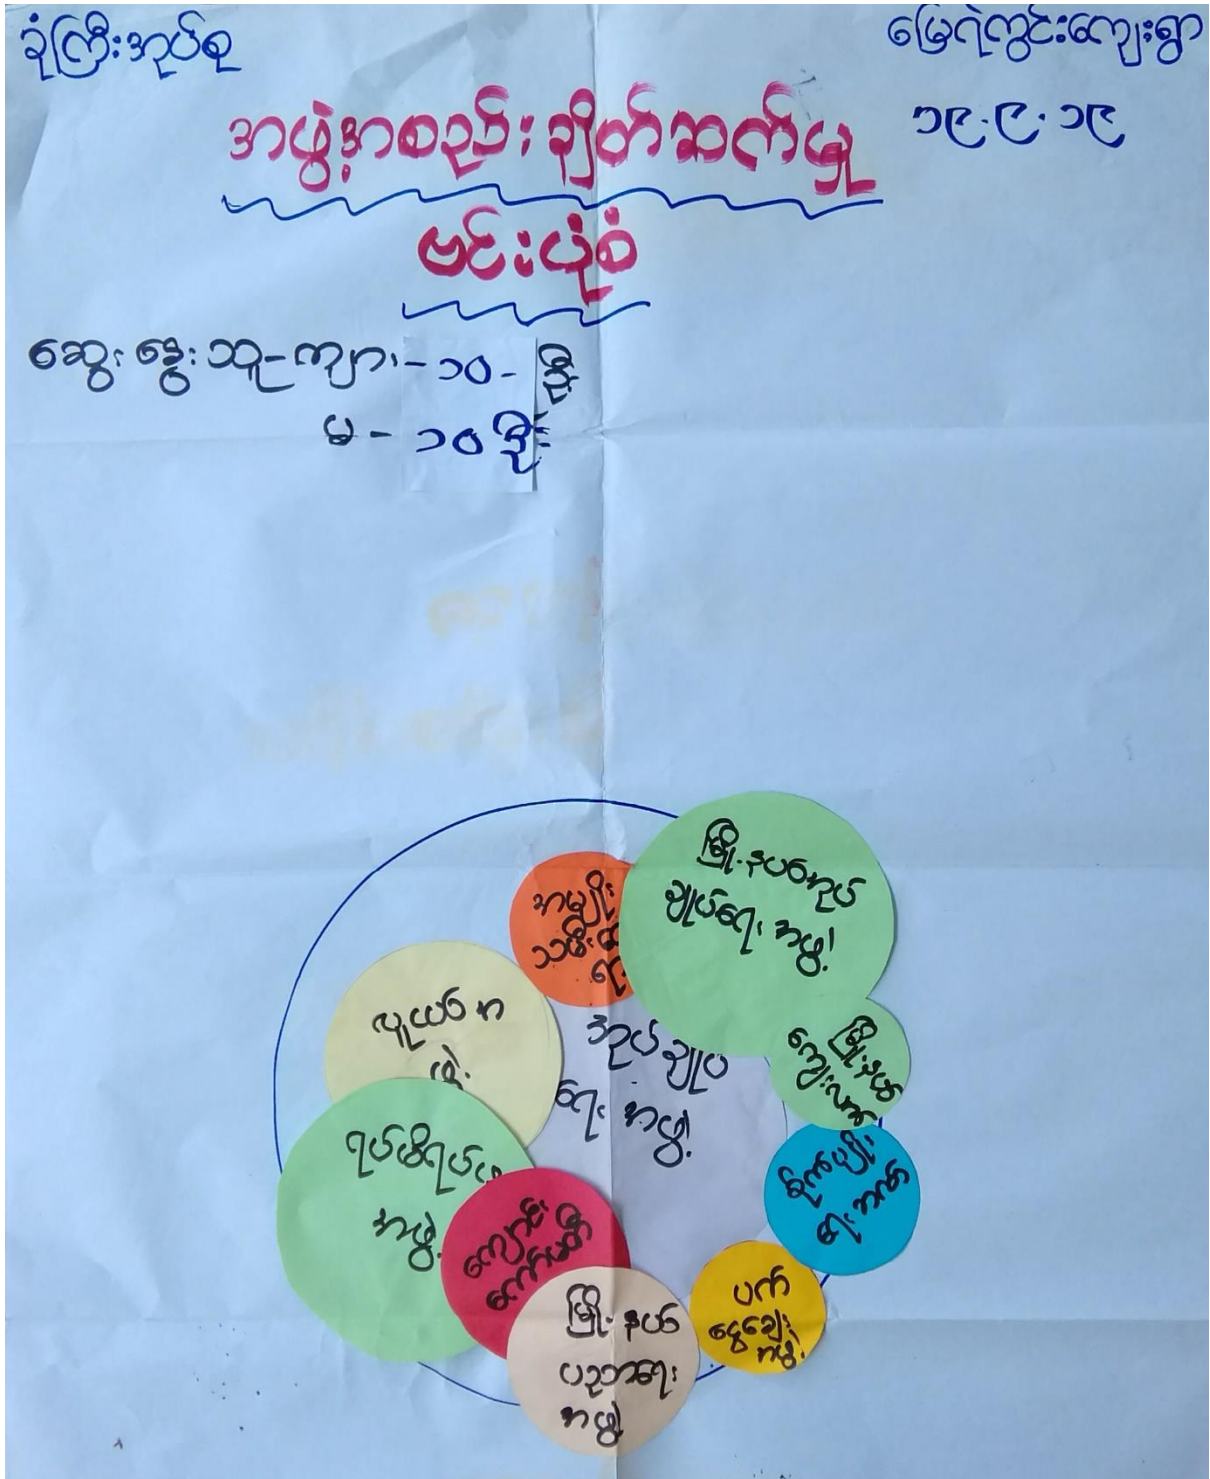 ခုံကြီးအုပ်စု
မြေရဲကွင်းကျေးရွာ
၁၉.၉.၁၉
အဖွဲ့အစည်းချိတ်ဆက်မှု
ဗင်းပုံစံ
ဆွေးနွေးသူ-ကျား-၁၀-ဦး
မ-၁၀ဦး
မြို့နယ်အုပ်
ချုပ်ရေးအဖွဲ့
အမျိုး
သမီး
ရေး
လူငယ်အ
ဖွဲ့
အုပ်ချုပ်
ရေးအဖွဲ့
မြို့နယ်
ကျေးလက်
ရပ်မိရပ်ဖ
အဖွဲ့
ကျောင်း
ကော်မတီ
စိုက်ပျိုး
ရေး
ပတ်
ငွေချေး
အဖွဲ့
မြို့နယ်
ပညာရေး
အဖွဲ့